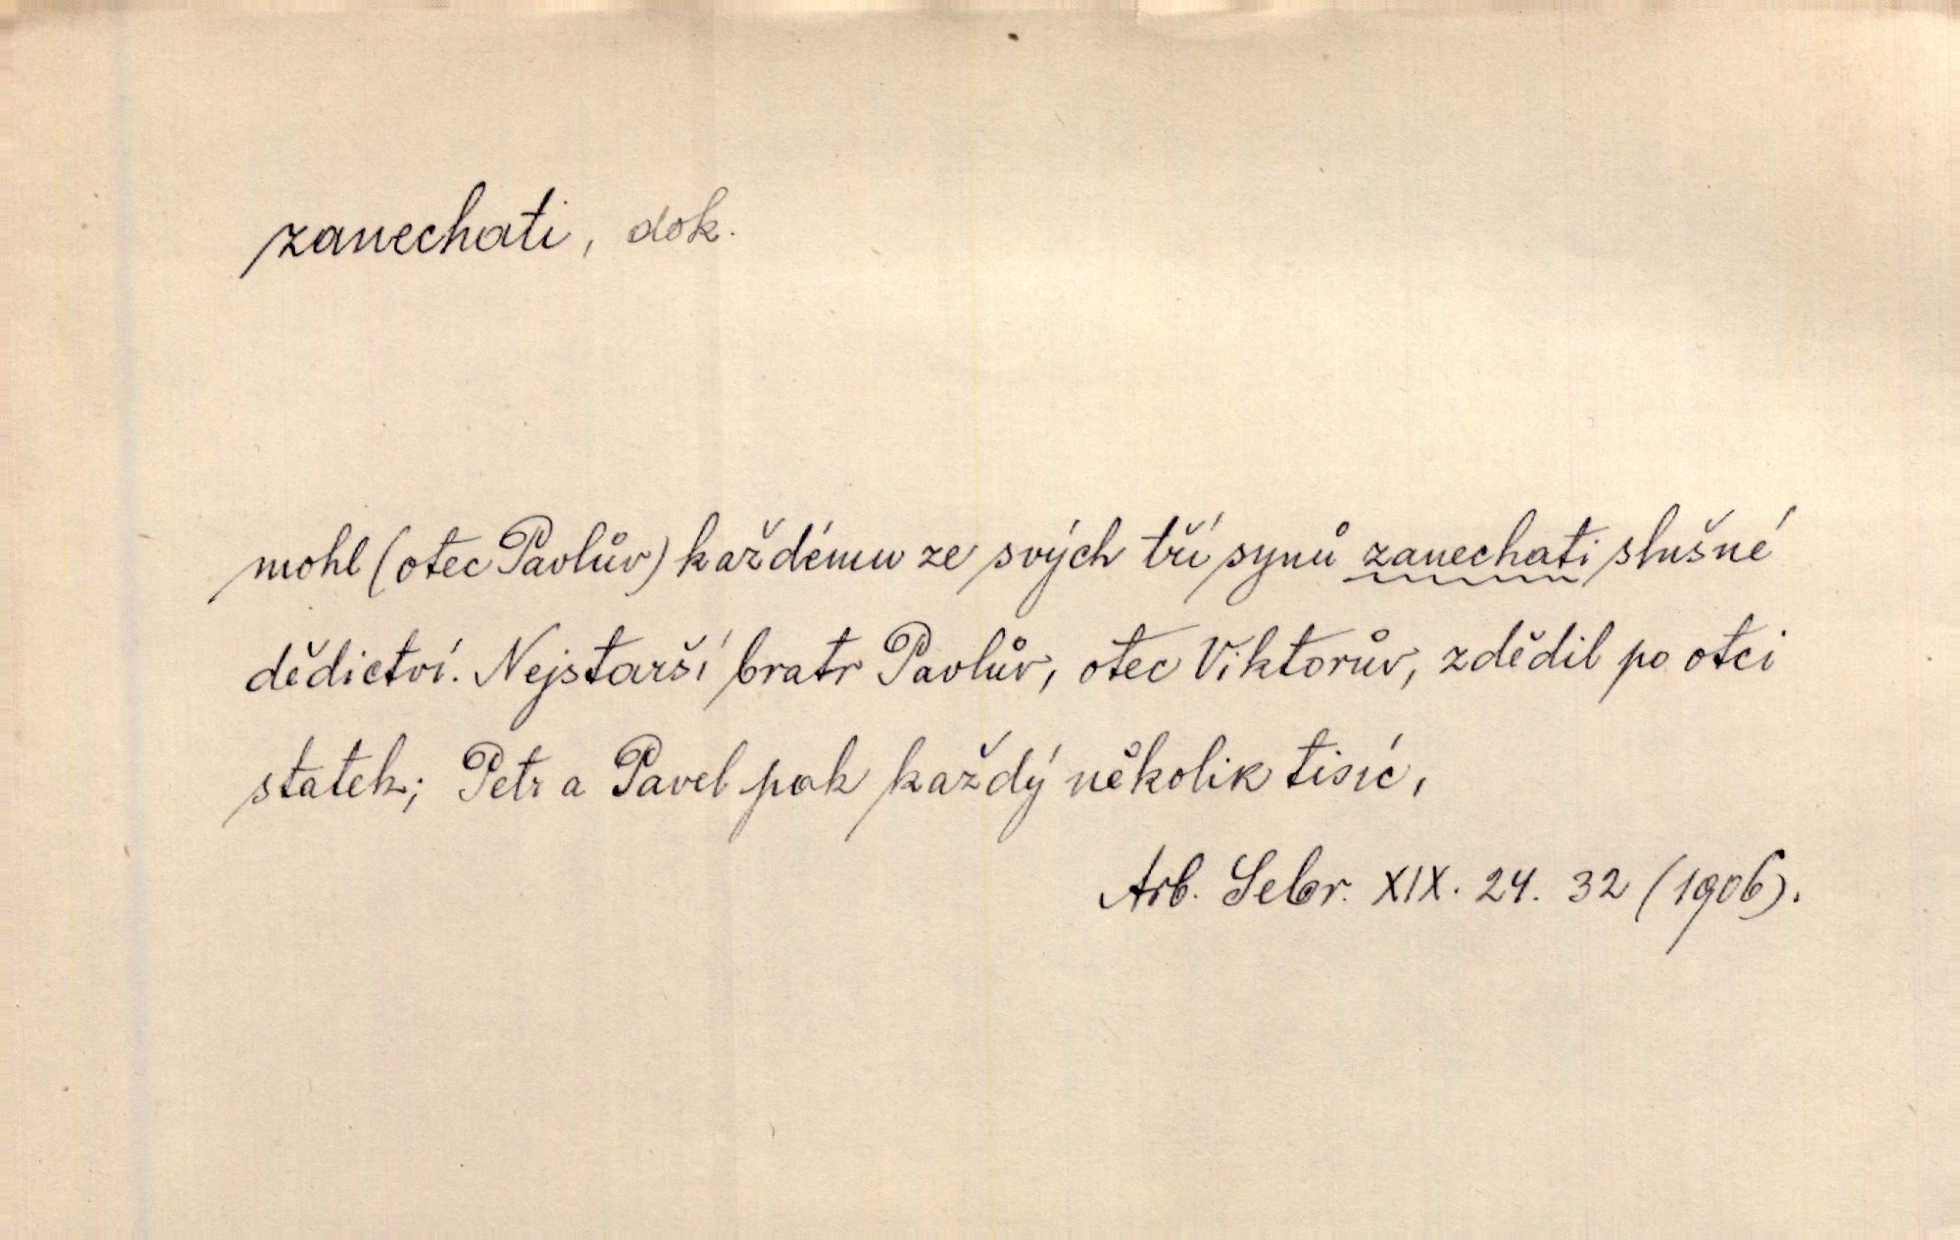 zanechati, dok.
mohl (otec Pavlův) každému ze svých tří synů zanechati slušné
dědictví. Nejstarší bratr Pavlův, otec Viktorův, zdědil po otci
statek; Petr a Pavel pak každý několik tisíc,
Arb. Sebr. XIX. 24. 32 (1906).